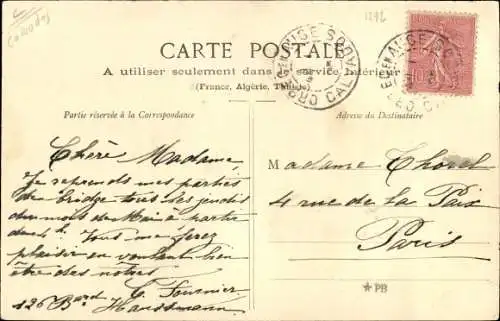 Calvados
1296
CARTE POSTALE
A utiliser seulement dans le Service Intérieur
(France, Algérie, Tunisie)
Partie réservée à la Correspondance
Adresse du Destinataire
CRÈVECOEUR EN AUGE CALVADOS
Chère Madame
Je reprends mes parties
de bridge tous les jeudis
du mois de Mai à partir
de 4h. Vous me ferez
plaisir en voulant bien
être des nôtres
C. Fournier
126 Bard Haussmann
Madame Thorel
4 rue de la Paix
Paris
PB